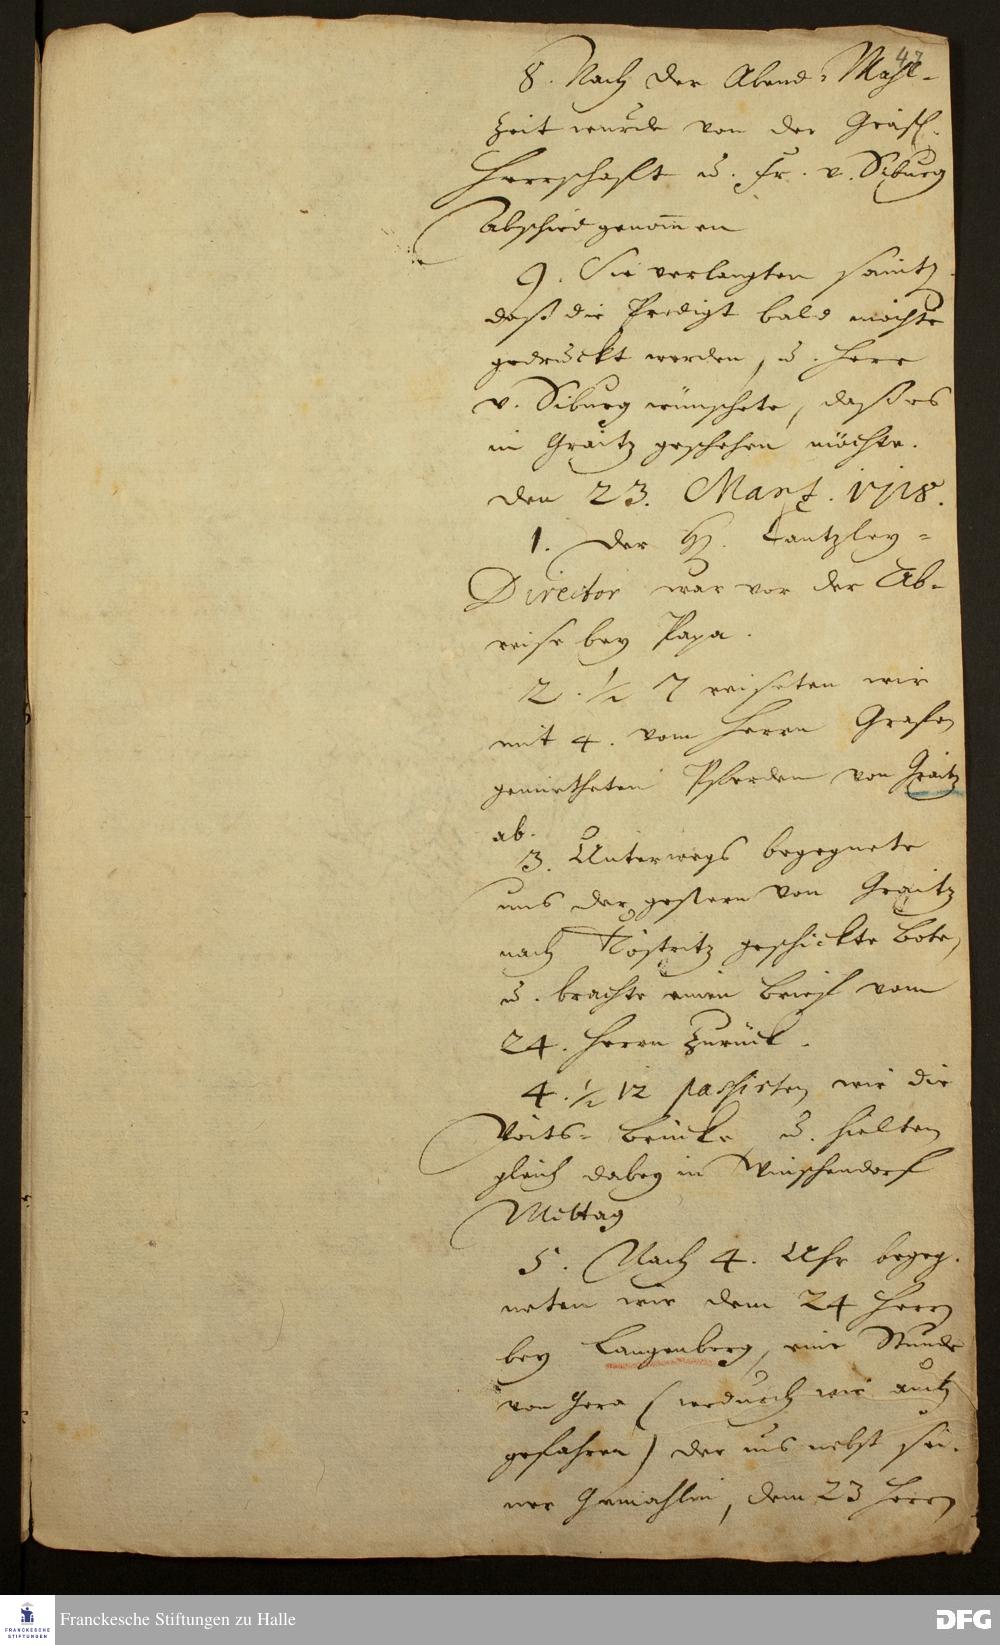 47
8. Nach der Abend-Mahl-
zeit wurde von der Gräfl.
Herrschafft u. Fr. v. Siburg
Abschied genom̄en
9. Sie verlangten sämtl.
daß die Predigt bald möchte
gedruckt werden, u. Herr
v. Siburg wünschete, daß es
in Graitz geschehen möchte.
den 23. Mart. 1718.
1. Der H. Cantzley-
Director war vor der Ab-
reise bey Papa.
2. ½ 7 reiseten wir
mit 4. vom Herrn Grafen
gemietheten Pferden von Graitz
ab.
3. Unterwegs begegnete
uns der gestern von Graitz
nach Köstritz geschickte Bote,
u. brachte einen Brief vom
24. Herrn zurück.
4. ½ 12 passirten wir die
Voits-Brücke u. hielten
gleich dabey in Wünschendorf
Mittag
5. Nach 4. Uhr begeg-
neten wir dem 24 Herrn
bey Langenberg, eine Stunde
von Gera (wodurch wir auch
gefahren) der uns nebst sei-
ner Gemahlin, dem 23 Herrn
FRANCKESCHE
STIFTUNGEN
Franckesche Stiftungen zu Halle
DFG